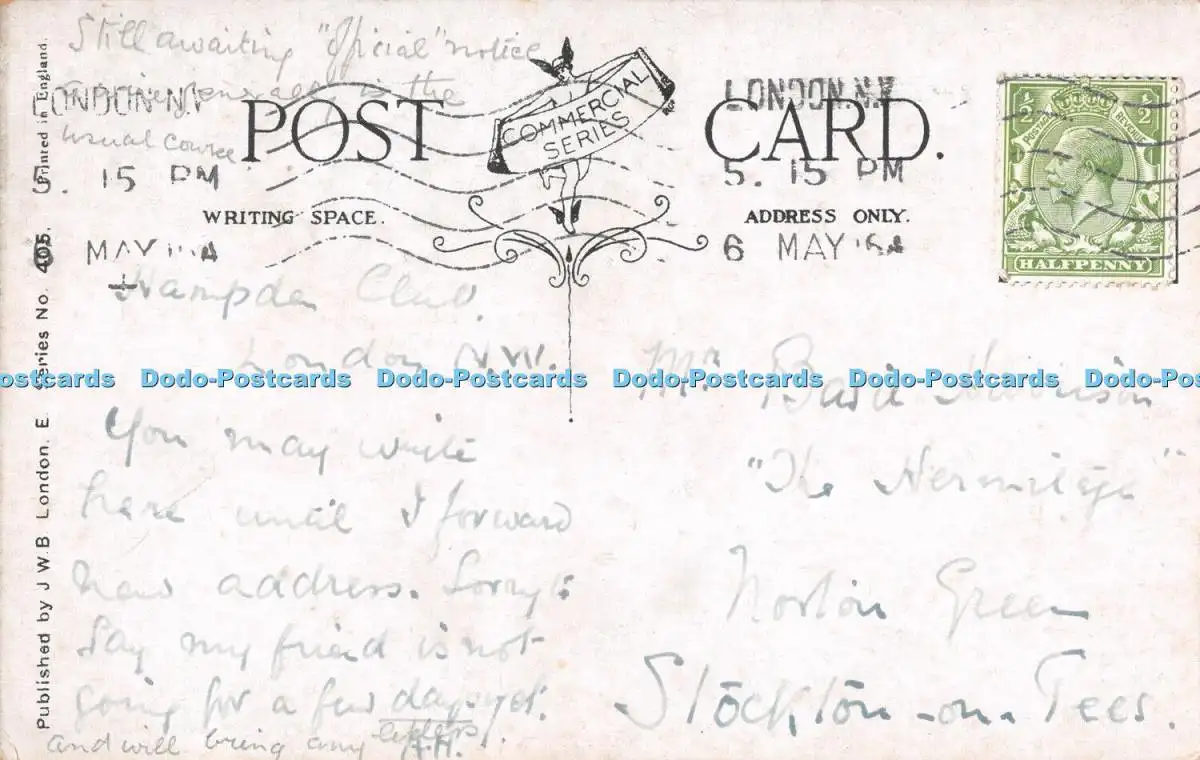 Still awaiting "official" notice
is the
usual course
POST CARD.
COMMERCIAL
SERIES
WRITING SPACE.
ADDRESS ONLY.
LONDON. N.W
5. 15 PM
MAY
LONDON. N.W
5. 15 PM
6 MAY
1/2 1/2
POSTAGE REVENUE
HALFPENNY
Hampden Club.
London N.W.
You may write
here until I forward
new address. Sorry to
say my friend is not
going for a few days yet.
and will bring any letters.
A.H.
Mr. Basil Harrison
"The Hermitage"
Norton Green
Stockton-on-Tees.
Published by J W.B London. E Series No. 405. Printed in England.
Dodo-Postcards Dodo-Postcards Dodo-Postcards Dodo-Postcards